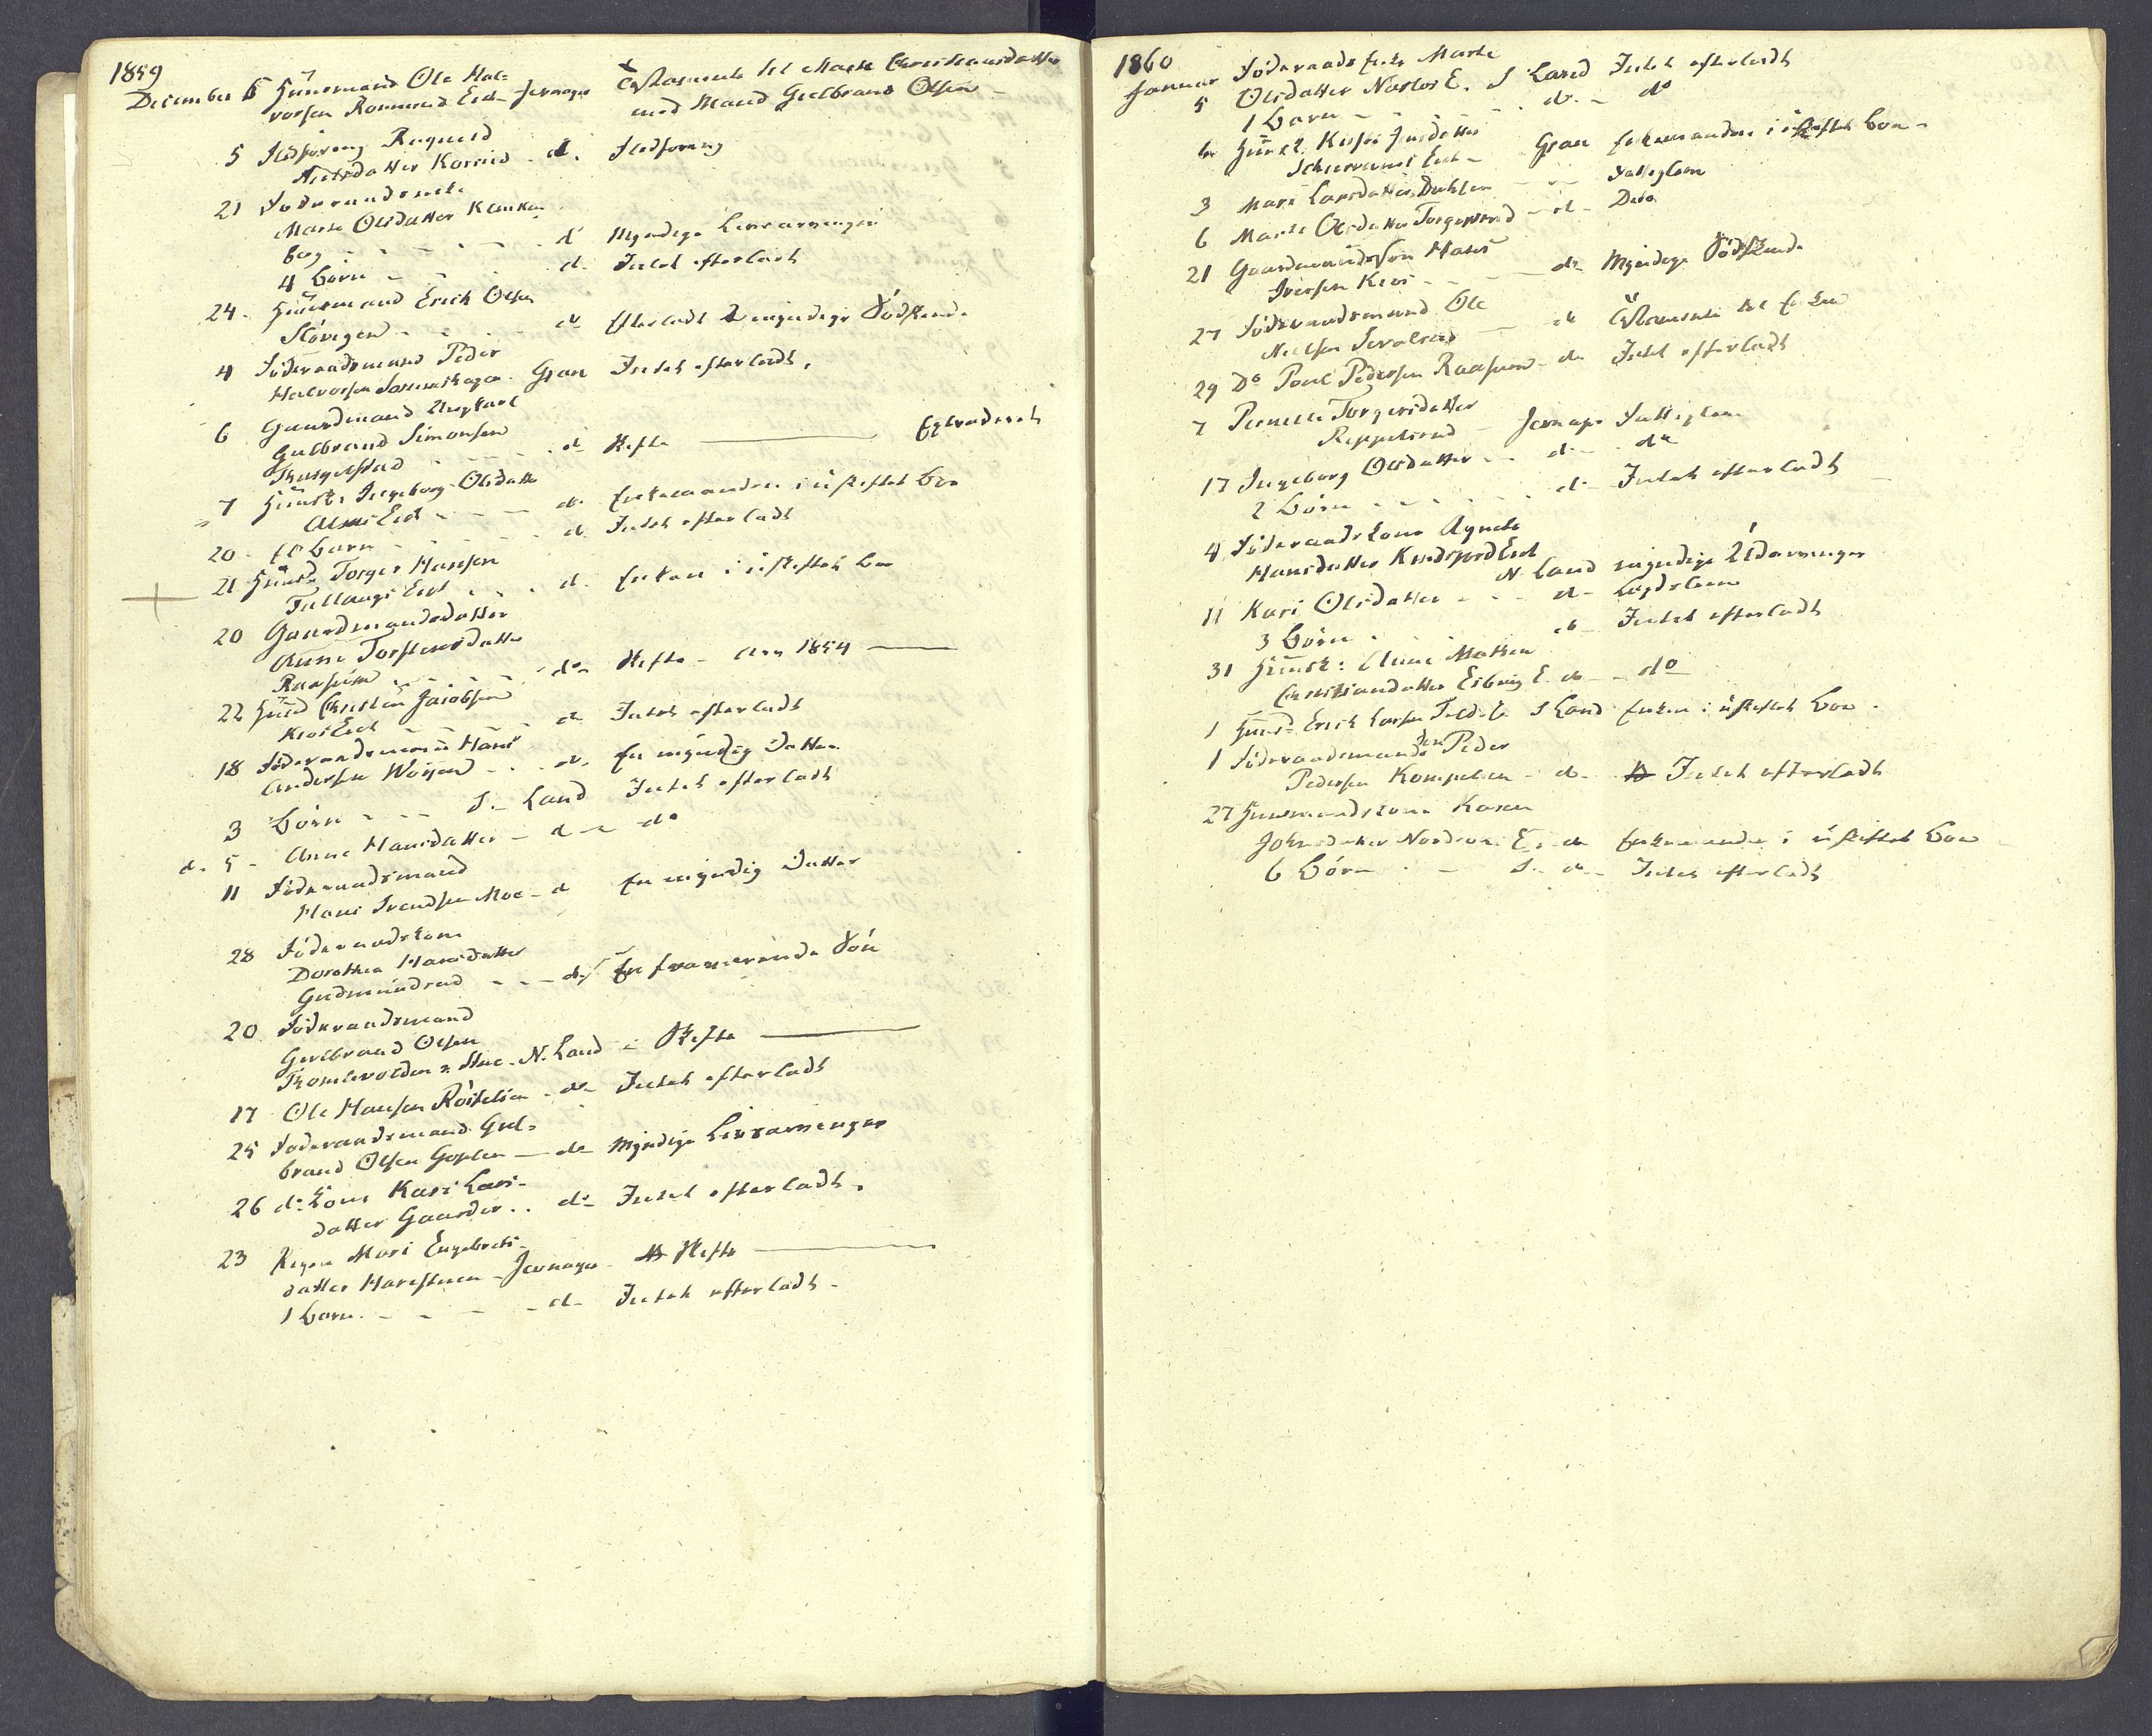 1859
December 6 Huusmand Ole Hal=
vorsen Rommerud Eie - Jevnager Testamente til Marte Christiansdatter
med Mand Gulbrand Olsen -
5 Fledføring Ragnild
Nielsdatter Korsrud - d. Fledføring
21 Føderaadsenke
Marte Olsdatter Klanken
berg - - - - d. Myndige Livsarvinger
4 Børn - - - d. Intet efterladt
24 - Huusmand Erick Olsen
Støvegen - - - do Efterladt 2 myndige Sødskende
4 Føderaadsmand Peder
Halvorsen Gran Intet efterladt.
6 Gaardmand Ungkarl
Gulbrand Simonsen
Thingelstad - - - d. Skifte ——— Extraderet
7 Huusk. Ingeborg Olsdatter
Alm Eie - - - d. Enkemanden i uskiftet Boe
20 - Et Barn - - - d. Intet efterladt
21 Huusmd Torger Hansen
Tullaugs Eie - - - d. Enken i uskiftet Boe
20 Gaardmandsdatter
Anne Torstensdatter
Raasum - - - do Skifte - Arv 1854 ———
22 Huusmd Christen Jacobsen
Klos Eie - - - d. Intet efterladt
18 Føderaadsmand Hans
Andersen Woyen - - d. En myndig Datter
3 Børn - - - S. Land Intet efterladt
d. 5 - Anne Hansdatter - d - do
11 Føderaadsmand
Hans Trondsen Moe - d En myndig Datter
28 Føderaadskone
Dorothea Hansdatter
Gudmundrud - - - d. En fraværende Søn
20 Føderaadsmand
Gulbrand Olsen
Thomlevolden N. Land - Skifte ———
17 - Ole Hansen Røiselien - do Intet efterladt
25 Føderaadsmand Gul=
brand Olsen Goplen — do Myndige Livsarvinger
26 do Kone Kari Lars=
datter Gaarder - - do Intet efterladt.
23 Pigen Mari Engebrets=
datter Harestuen - Jevnager - Skifte ———
1 Barn - - - d. Intet efterladt -
1860
Januar Føderaads Enke Marte
5 Olsdatter Narlos E. S Land Intet efterladt
1 Barn - - - do - do
6 Huusk. Kirsti Jensdatter
Eie - Gran Enkemanden i uskiftet Boe -
3 Mari Larsdatter Dahlen - - Fattiglem
6 Marte Olsdatter Torgersrud - d - Dito
21 Gaardmandssøn Hans
Iversen Klos - - - do Myndige Sødskende
27 Føderaadsmand Ole
Nielsen - do Testamente til Enken
29 Do Poul Pedersen Raasum - do Intet efterladt
7 Pernille Torgersdatter
Reppelsrud - Jevnager Fattiglem
17 Ingeborg Olsdatter - - d. - do
2 Børn - - - - d. Intet efterladt
4 Føderaadskone Agnete
Hansdatter Eie
N. Land myndige Udarvinger
11 Kari Olsdatter - - d. Lægdslem
3 Børn - d. Intet efterladt
31 Huusk: Anne Mathea
Christiansdatter E. do - do
1 Huusmd Erick Larsen S Land Enken i uskiftet Boe -
1 Føderaadsmand Peder
Pedersen Kompelien - do - Intet efterladt
27 Huusmandskone Karen
Johnsdatter E. do Enkemanden i uskiftet Boe
6 Børn - - S. do - Intet efterladt